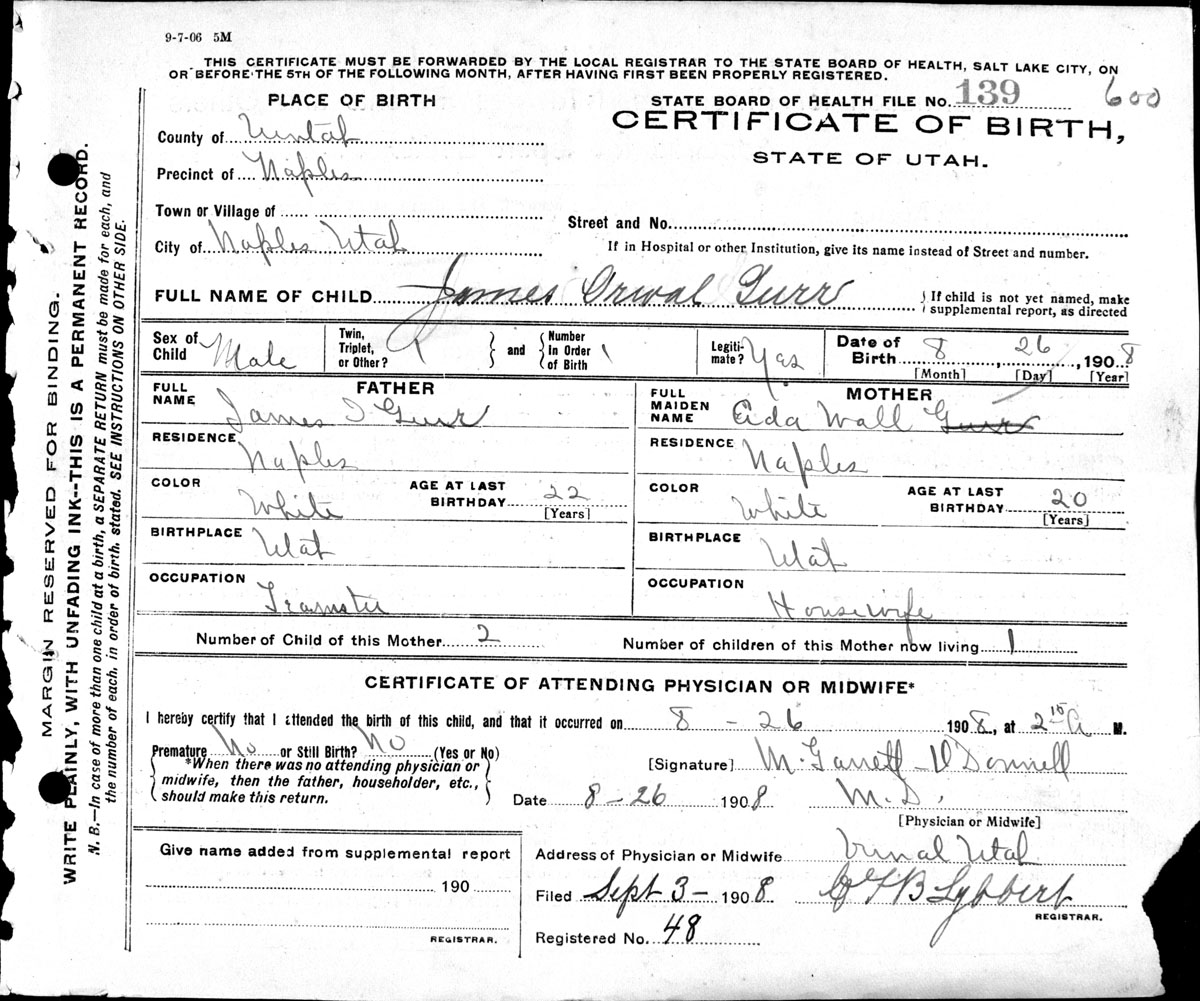 9-7-06 5M
THIS CERTIFICATE MUST BE FORWARDED BY THE LOCAL REGISTRAR TO THE STATE BOARD OF HEALTH, SALT LAKE CITY, ON
OR BEFORE THE 5TH OF THE FOLLOWING MONTH, AFTER HAVING FIRST BEEN PROPERLY REGISTERED.
PLACE OF BIRTH
STATE BOARD OF HEALTH FILE NO. 139 600
CERTIFICATE OF BIRTH,
STATE OF UTAH.
County of Uintah
Precinct of Naples
Town or Village of
Street and No.
City of Naples Utah
If in Hospital or other Institution, give its name instead of Street and number.
FULL NAME OF CHILD James Orval Gurr
If child is not yet named, make
supplemental report, as directed
Sex of Child Male
Twin, Triplet, or Other?
and
Number In Order of Birth 1
Legitimate? Yas
Date of Birth 8 26, 1908
[Month] [Day] [Year]
FATHER
FULL NAME James I Gurr
RESIDENCE Naples
COLOR White
AGE AT LAST BIRTHDAY 22
[Years]
BIRTHPLACE Utah
OCCUPATION Teamster
MOTHER
FULL MAIDEN NAME Eida Wall Gurr
RESIDENCE Naples
COLOR White
AGE AT LAST BIRTHDAY 20
[Years]
BIRTHPLACE Utah
OCCUPATION Housewife
Number of Child of this Mother 2
Number of children of this Mother now living 1
CERTIFICATE OF ATTENDING PHYSICIAN OR MIDWIFE*
I hereby certify that I attended the birth of this child, and that it occurred on 8 - 26 1908, at 2 10 A M.
Premature No or Still Birth? No (Yes or No)
*When there was no attending physician or
midwife, then the father, householder, etc.,
should make this return.
[Signature]
Date 8-26 1908 M.D.
[Physician or Midwife]
Give name added from supplemental report
190
REGISTRAR.
Address of Physician or Midwife Vernal Utah
Filed Sept 3- 1908 Lybbert
REGISTRAR.
Registered No. 48
MARGIN RESERVED FOR BINDING.
WRITE PLAINLY, WITH UNFADING INK--THIS IS A PERMANENT RECORD.
N. B.—In case of more than one child at a birth, a SEPARATE RETURN must be made for each, and
the number of each, in order of birth, stated. SEE INSTRUCTIONS ON OTHER SIDE.